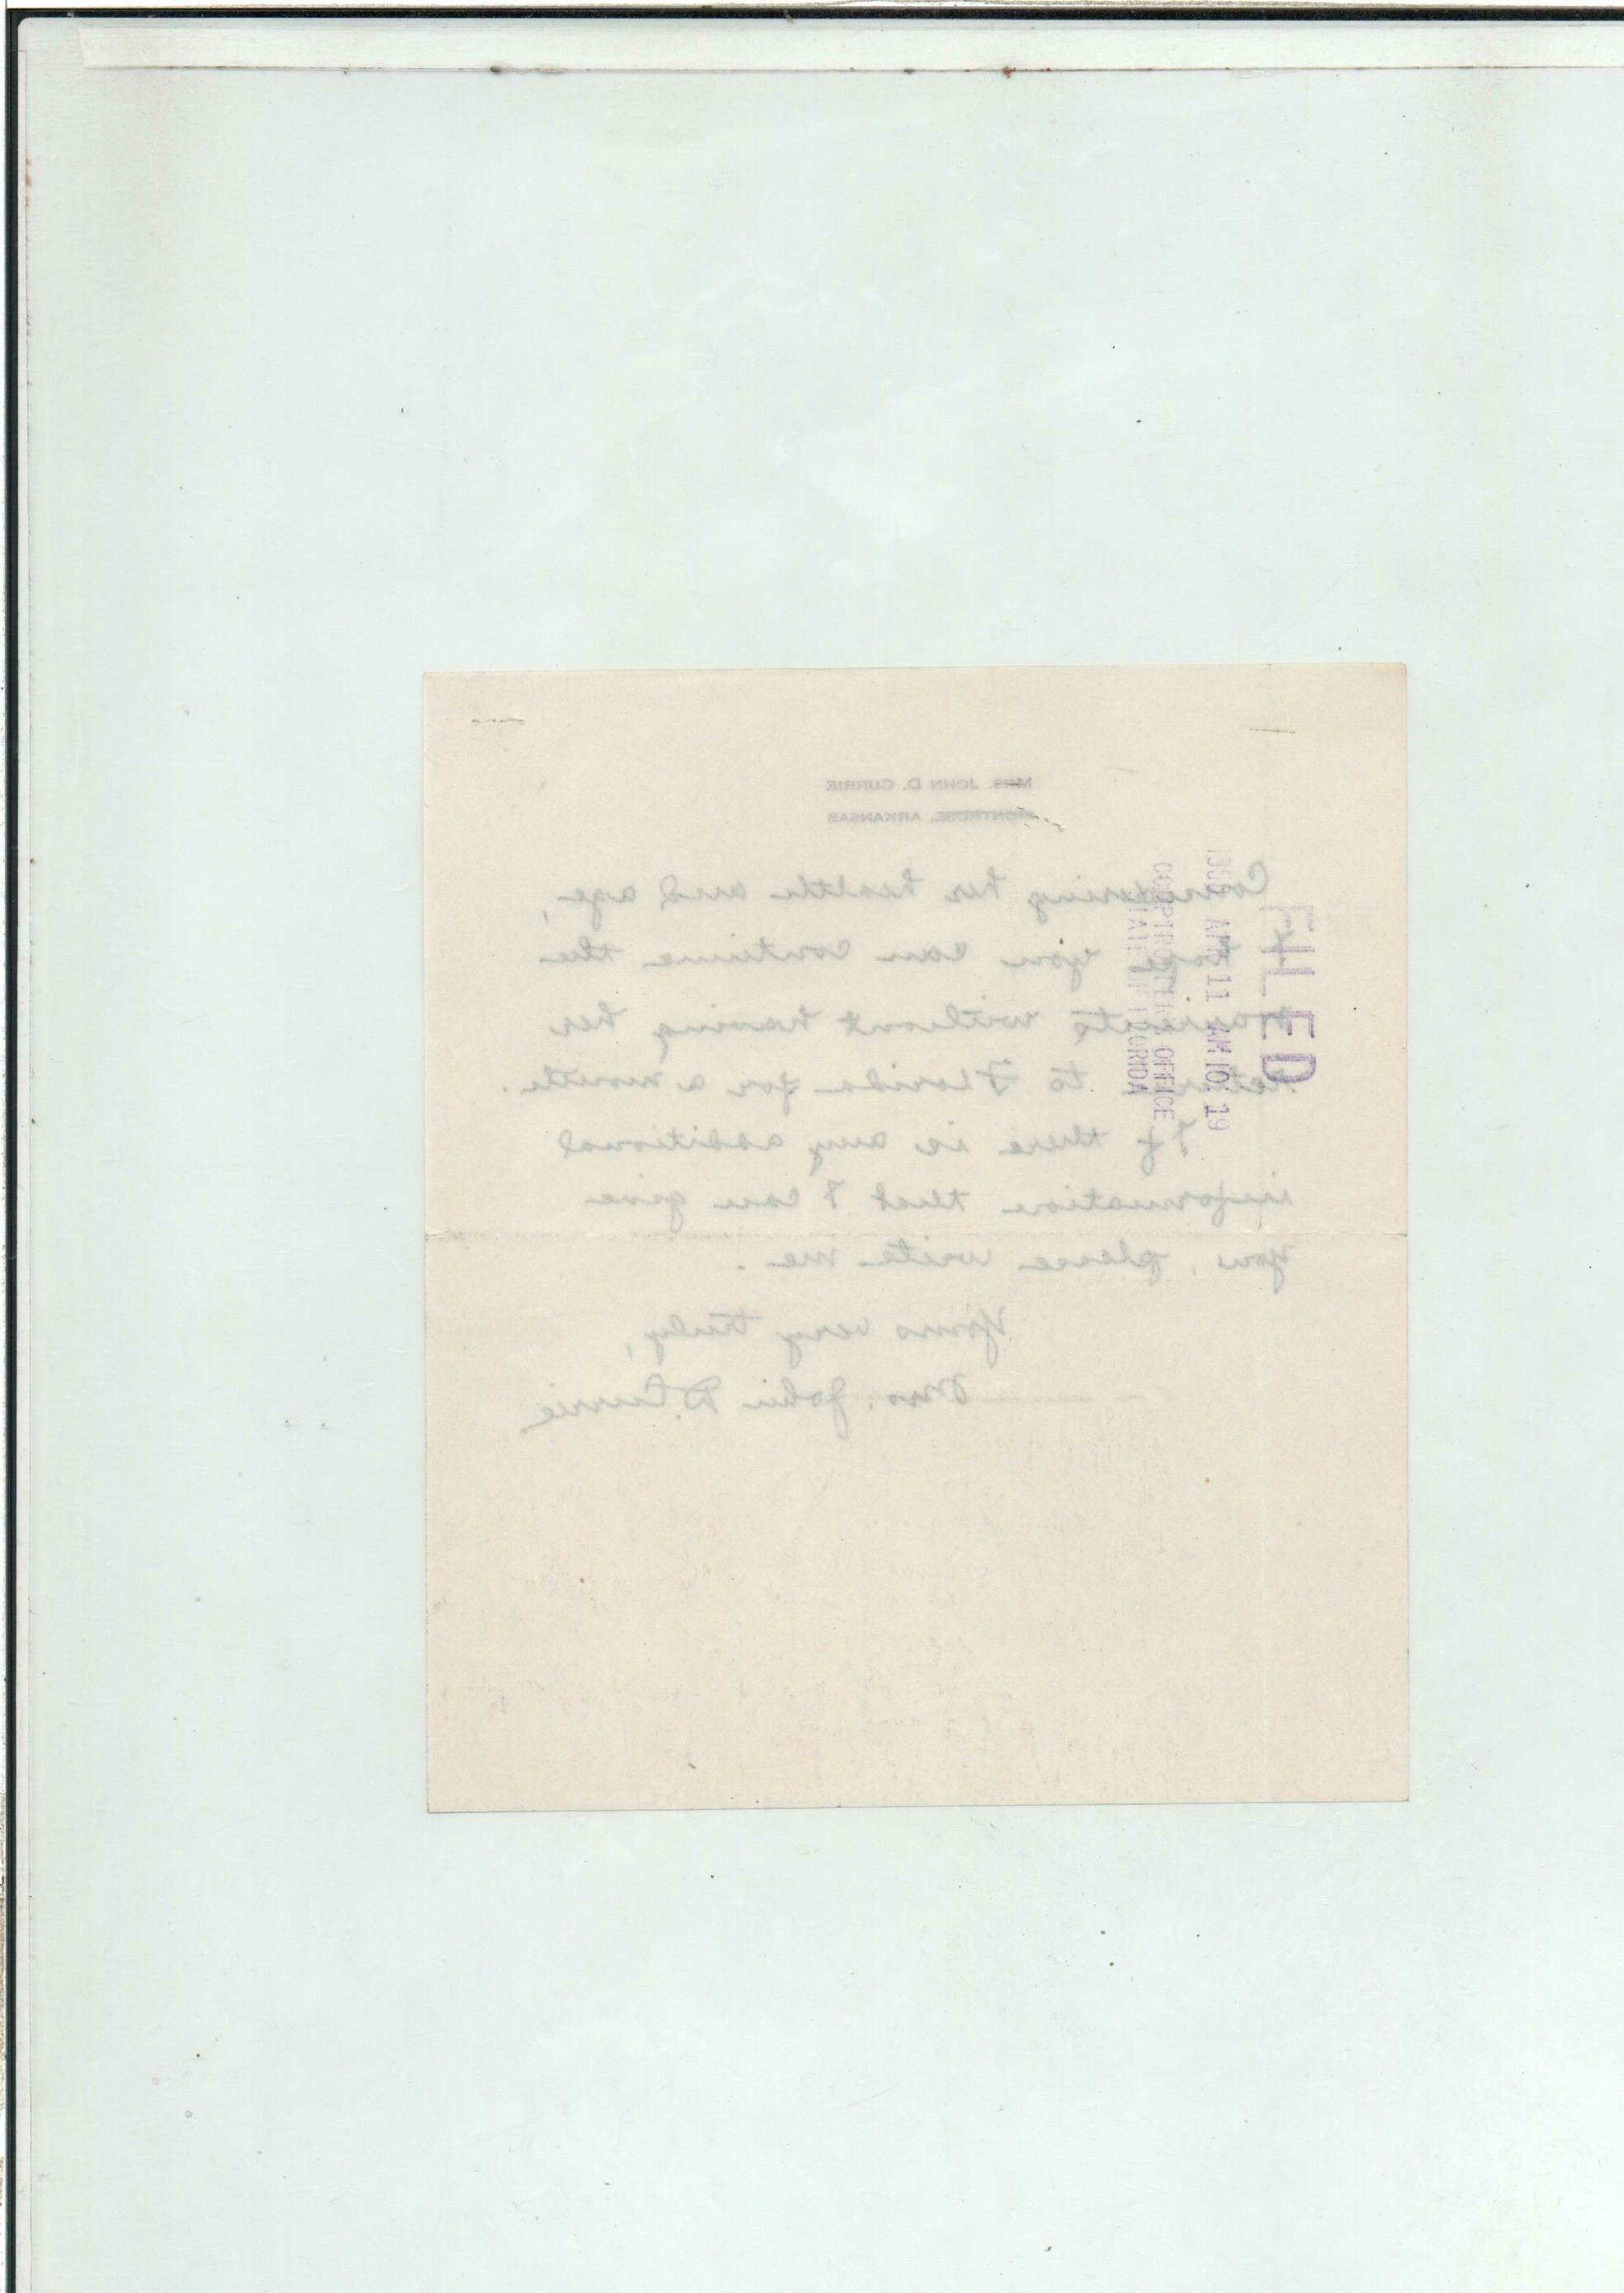 MRS. JOHN D. CURRIE
MONTROSE, ARKANSAS
Considering her health and age,
I hope you can continue the
warrants without having her
return to Florida for a month.
If there is any additional
information that I can give
you, please write me.
Yours very truly,
Mrs. John D. Currie
FILED
APR 11 AM 10:19
COMPTROLLERS OFFICE
STATE OF FLORIDA